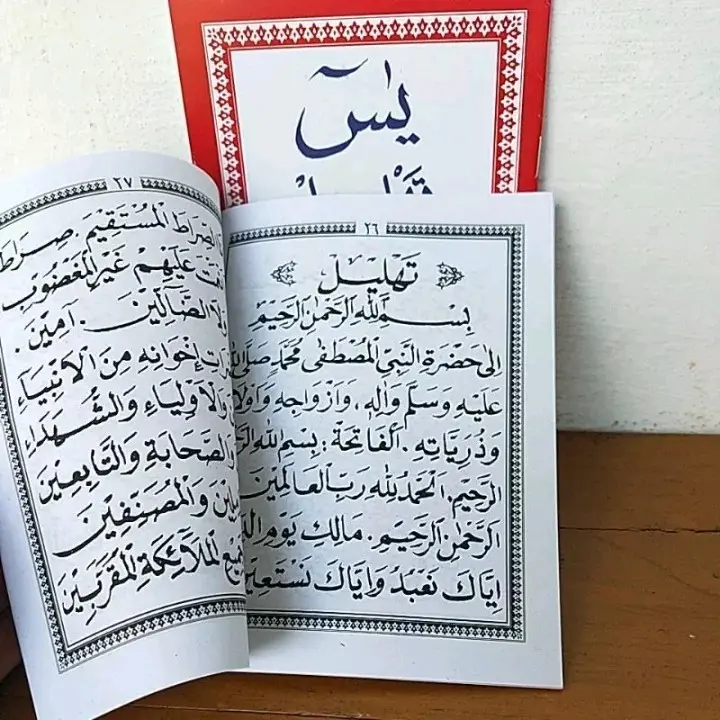 يٰسٓ
٢٦
تَهْلِيْل
بِسْمِ اللهِ الرَّحْمٰنِ الرَّحِيْمِ
اِلَى حَضْرَةِ النَّبِيِّ الْمُصْطَفٰى مُحَمَّدٍ صَلَّى اللهُ
عَلَيْهِ وَسَلَّمَ وَاٰلِهِ، وَاَزْوَاجِهِ
وَذُرِّيَّاتِهِ. اَلْفَاتِحَةْ: بِسْمِ اللهِ
الرَّحِيْمِ. اَلْحَمْدُ لِلّٰهِ رَبِّ الْعَالَمِيْنَ
الرَّحْمٰنِ الرَّحِيْمِ. مَالِكِ يَوْمِ
اِيَّاكَ نَعْبُدُ وَاِيَّاكَ نَسْتَعِيْنُ
٢٧
الصِّرَاطَ الْمُسْتَقِيْمَ. صِرَاطَ
عَلَيْهِمْ غَيْرِ الْمَغْضُوْبِ
وَلَا الضَّآلِّيْنَ. اٰمِيْنَ.
اِخْوَانِهِ مِنَ الْاَنْبِيَاءِ
وَالْاَوْلِيَاءِ وَالشُّهَدَاءِ
وَالصَّحَابَةِ وَالتَّابِعِيْنَ
وَالْمُصَنِّفِيْنَ
الْمَلَآئِكَةِ الْمُقَرَّبِيْنَ